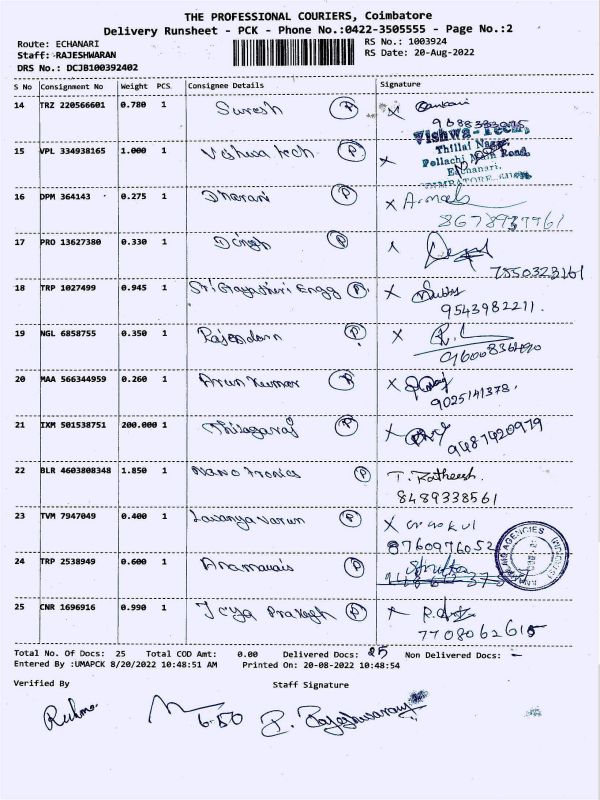 THE PROFESSIONAL COURIERS, Coimbatore
Delivery Runsheet - PCK - Phone No.:0422-3505555 - Page No.:2
Route: ECHANARI
RS No.: 1003924
Staff: RAJESHWARAN
RS Date: 20-Aug-2022
DRS No.: DCJB100392402
S No Consignment No Weight PCS Consignee Details Signature
14 TRZ 220566601 0.780 1 Suresh P X
9688383075
15 VPL 334938165 1.000 1 Vishwa tech P X
Vishwa-Tech,
Thillai Nagar,
Pollachi Main Road,
Echanari,
16 DPM 364143 0.275 1 Dharani P X
8678937761
17 PRO 13627380 0.330 1 P
7550323161
18 TRP 1027499 0.945 1 Sri Gayathiri Engg P X
9543982211.
19 NGL 6858755 0.350 1 P X
20 MAA 566344959 0.260 1 Arun Kumar P X
9025141378.
21 IXM 501538751 200.000 1 Thilagaraj P X
9487420979
22 BLR 4603808348 1.850 1 Nano Tronics P T. Ratheesh.
8489338561
23 TVM 7947049 0.400 1 Lavanya varun P X Gokul
8760976052
24 TRP 2538949 0.600 1 P
AGENCIES
25 CNR 1696916 0.990 1 Jeya Prakash P
7708062615
Total No. Of Docs: 25 Total COD Amt: 0.00 Delivered Docs: 25 Non Delivered Docs: -
Entered By :UMAPCK 8/20/2022 10:48:51 AM Printed On: 20-08-2022 10:48:54
Verified By Staff Signature
6-50 P. Rajeshwaran